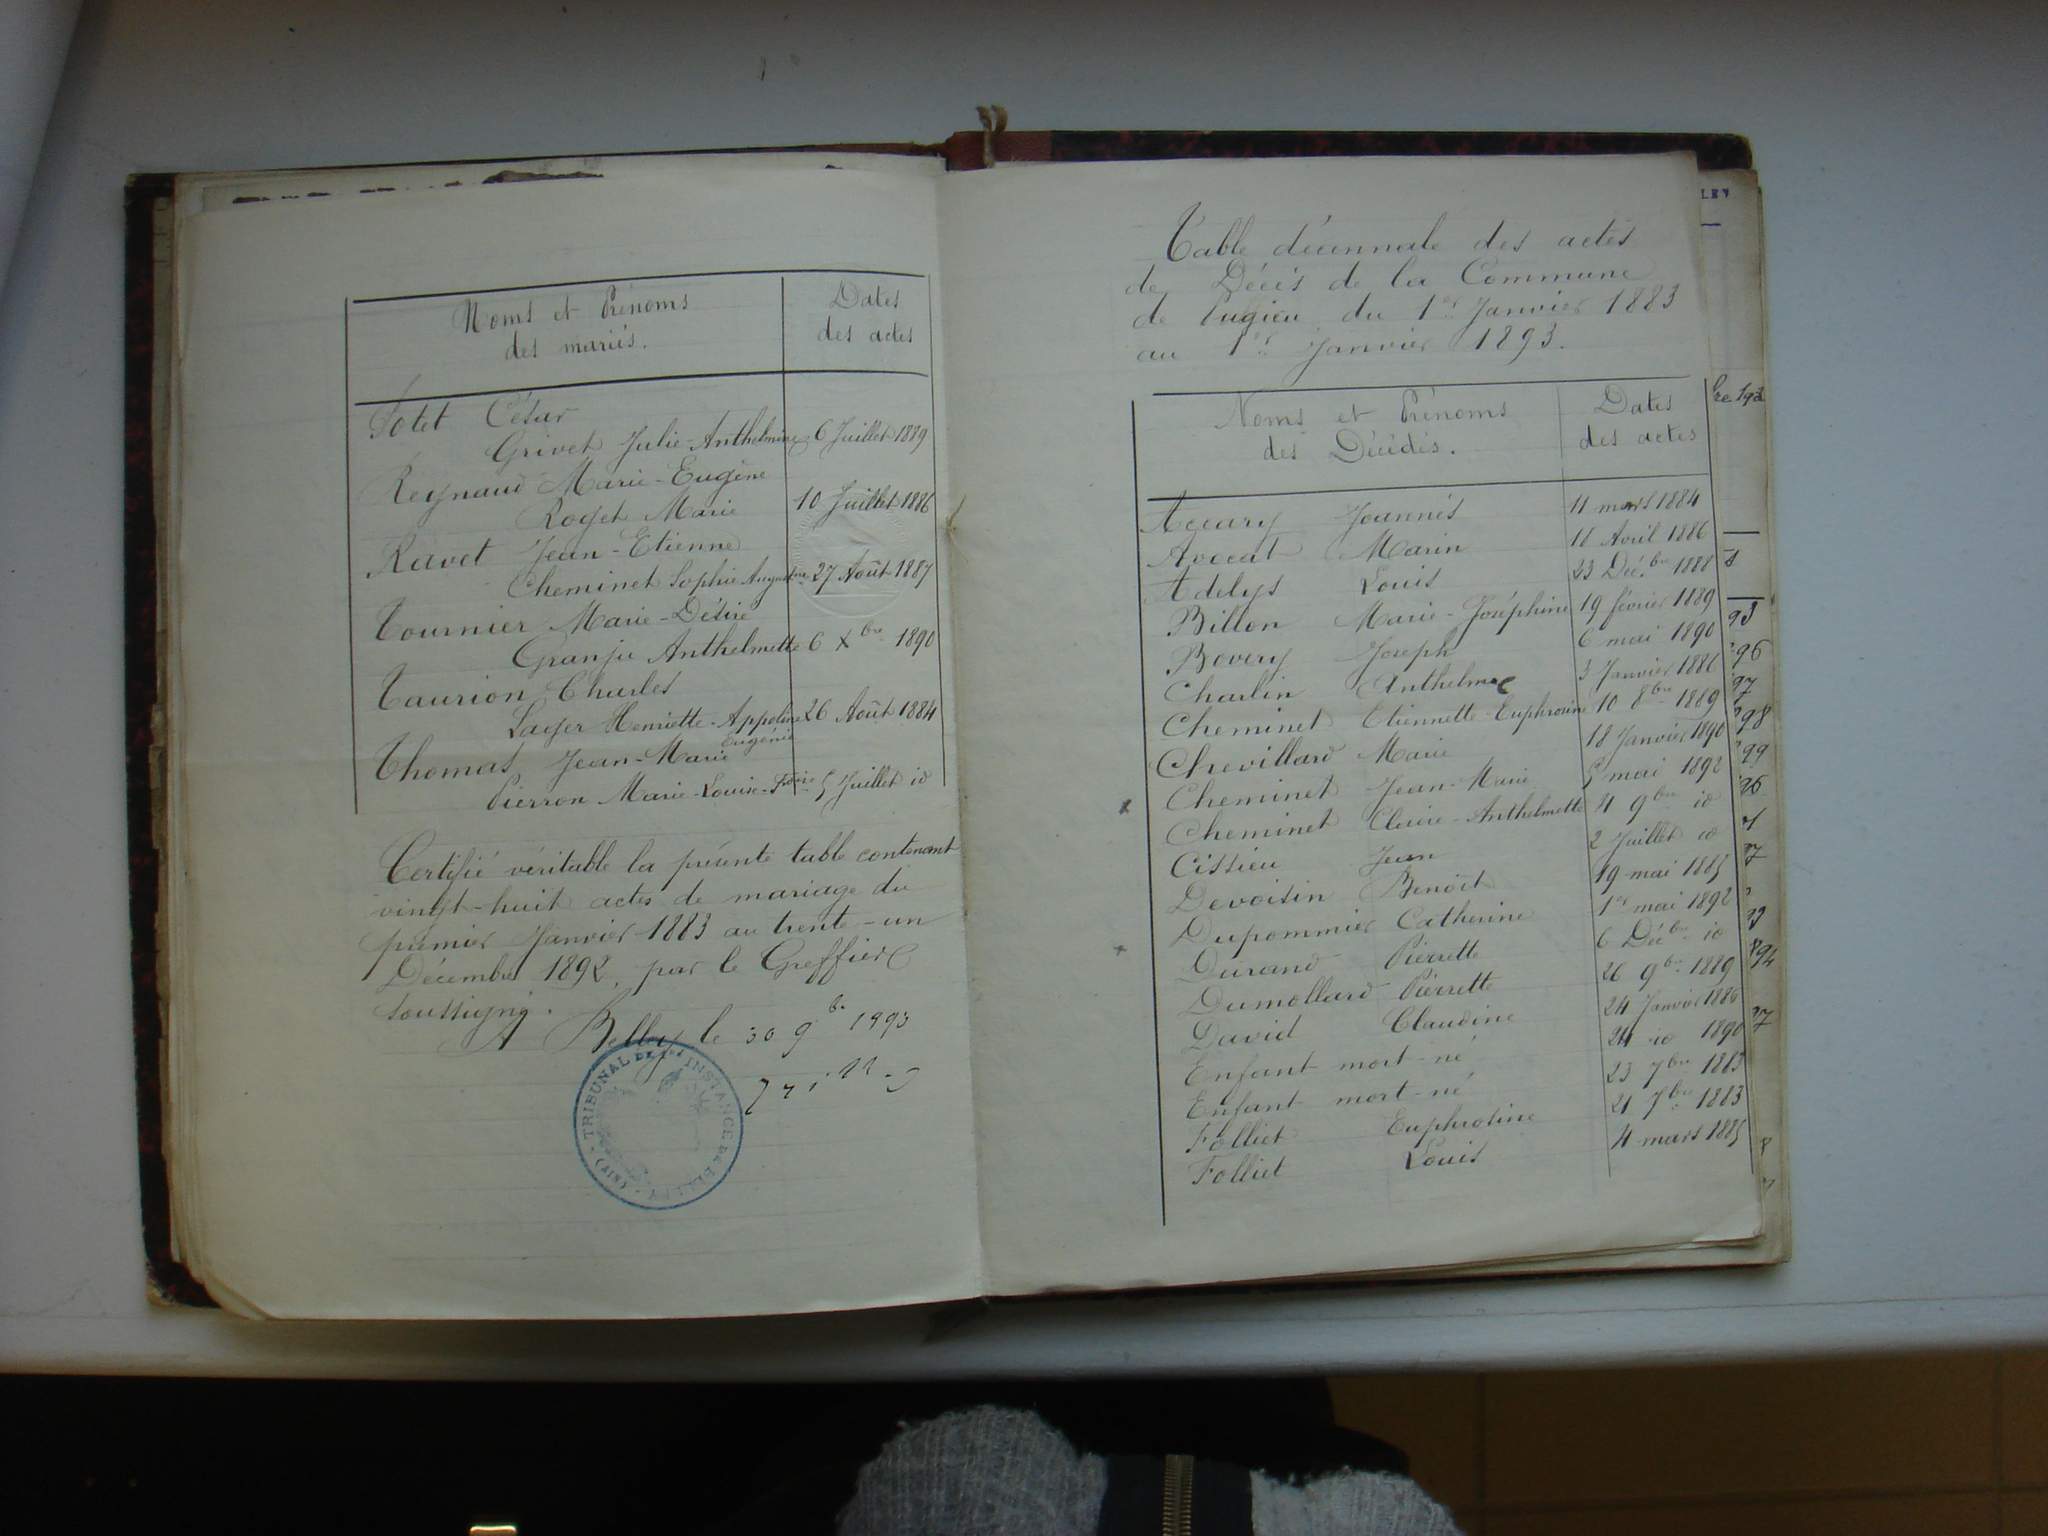 Noms et Prénoms
des mariés.
Dates
des actes
Potet César
Grivet Julie-Anthelmine 6 Juillet 1889
Reynaud Marie-Eugène
Roget Marie 10 Juillet 1886
Ravet Jean-Etienne
Cheminet Sophie Augustine 27 Août 1887
Tournier Marie-Désiré
Granju Anthelmette 6 Xbre 1890
Taurion Charles
Lager Henriette-Appoline 26 Août 1884
Eugénie
Thomas Jean-Marie
Pierron Marie-Louise- 5 Juillet id
Certifié véritable la présente table contenant
vingt-huit actes de mariage du
premier Janvier 1883 au trente-un
Décembre 1892, par le Greffier
soussigné.
A Belley le 30 9bre 1893
TRIBUNAL DE 1ère INSTANCE DE BELLEY (AIN)
Table décennale des actes
de Décès de la Commune
de Pugieu du 1er Janvier 1883
au 1er Janvier 1893.
Noms et Prénoms
des Décédés.
Dates
des actes
Ageary Joannés 11 mars 1884
Avocat Marin 18 Avril 1886
Adelys Louis 23 Déc.bre 1888
Billon Marie-Joséphine 19 février 1889
Bovery Joseph 6 mai 1890
Charlin Anthelme 3 Janvier 1886
Cheminet Etiennette-Euphrosine 10 8bre 1889
Chevillard Marie 18 Janvier 1890
Cheminet Jean-Marie 5 mai 1892
Cheminet Claire-Anthelmette 4 9bre id
Cissieu Jean 2 Juillet id
Devoisin Benoît 19 mai 1885
Dupommier Catherine 1er mai 1892
Durand Pierrette 6 Décbre id
Dumollard Pierrette 26 9bre 1889
David Claudine 24 Janvier 1886
Enfant mort-né 24 id 1890
Enfant mort-né 23 7bre 1883
Folliet Euphrosine 21 7bre 1883
Folliet Louis 4 mars 1885